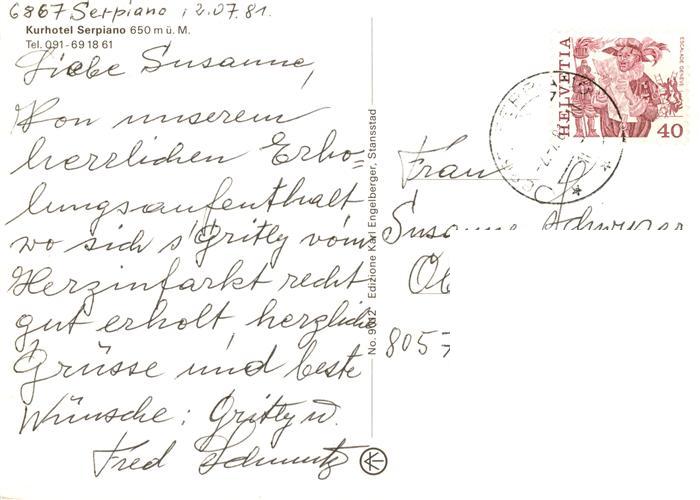 6867 Serpiano, 2.07.81.
Kurhotel Serpiano 650 m ü. M.
Tel. 091-69 18 61
Liebe Susanne,
Von unserem
herrlichen Erho=
lungsaufenthalt
wo sich s'Gritly vom
Herzinfarkt recht
gut erholt, herzliche
Grüsse und beste
Wünsche: Gritly u.
Fred Schmutz
No. 9612 Edizione Karl Engelberger, Stansstad
HELVETIA
ESCALADE GENÈVE
40
Frau
Susanne
805